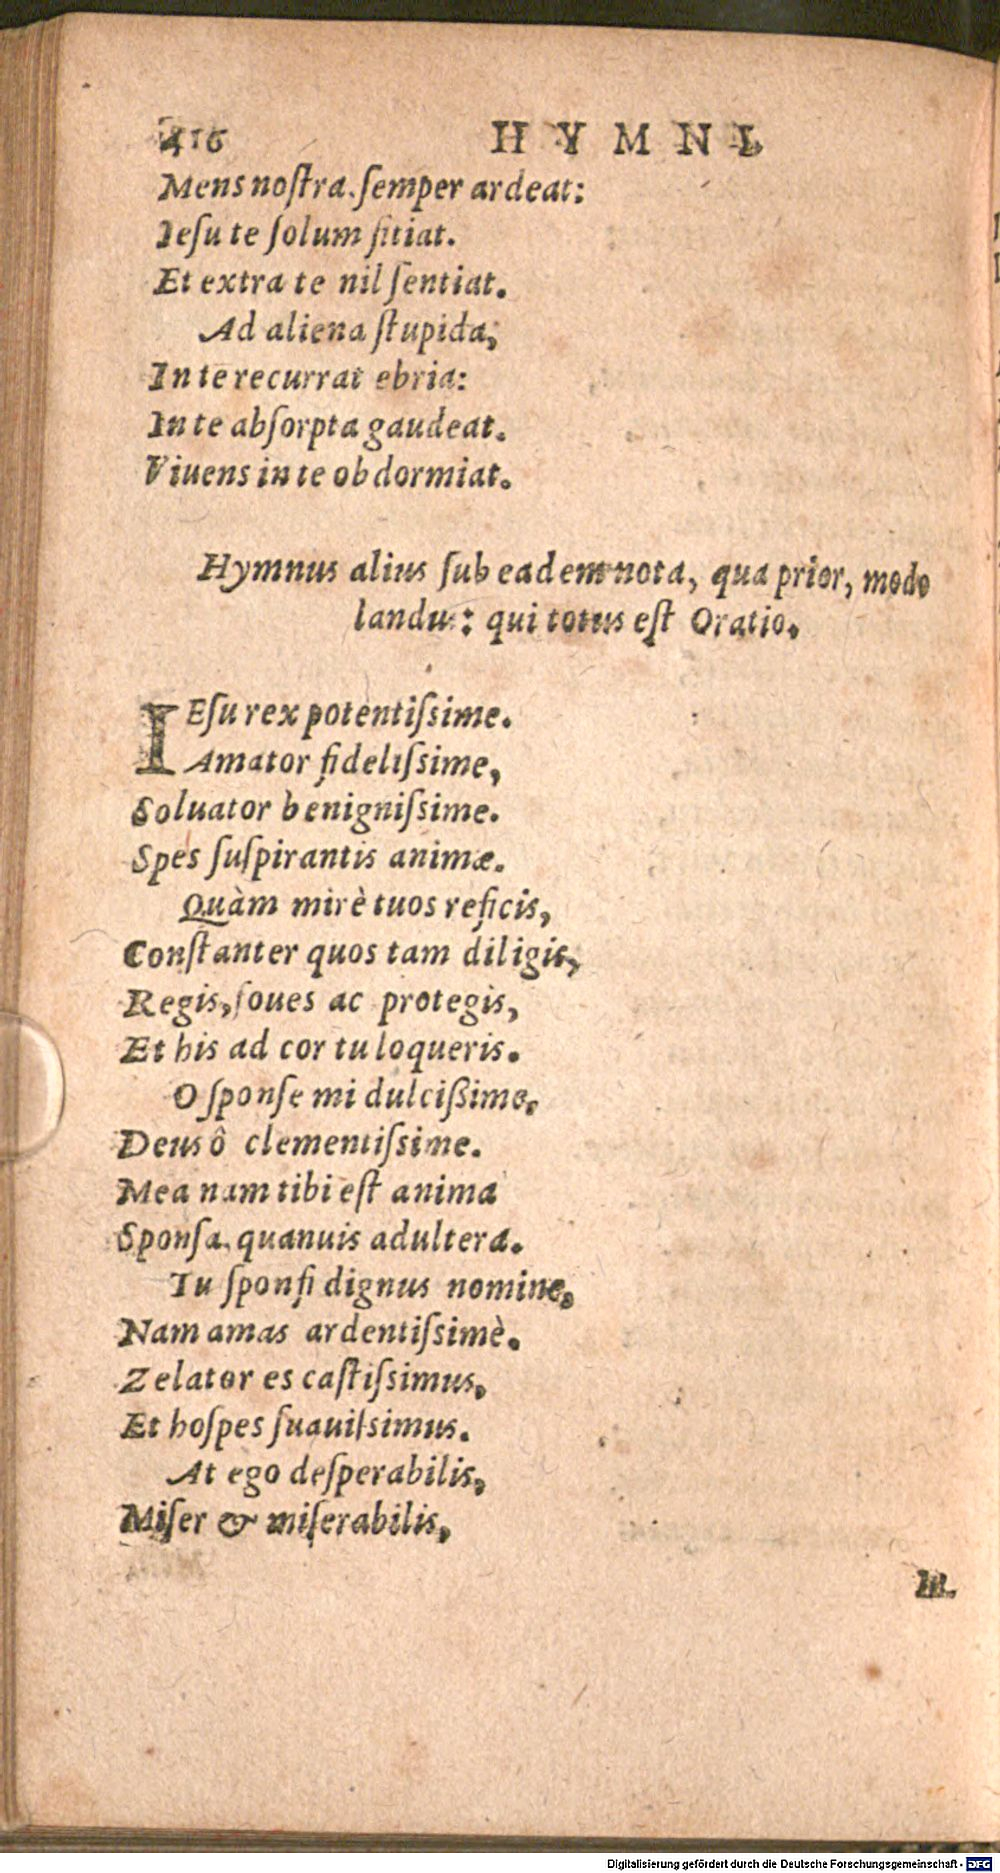 416 HYMNI.
Mens noſtra ſemper ardeat:
Ieſu te ſolum ſitiat.
Et extra te nil ſentiat.
Ad aliena ſtupida,
In te recurrat ebria:
In te abſorpta gaudeat.
Viuens in te obdormiat.
Hymnus alius ſub eadem nota, qua prior, modo
landus: qui totus eſt Oratio.
IEſu rex potentiſsime.
Amator fideliſsime,
Soluator benigniſsime.
Spes ſuſpirantis animæ.
Quàm mirè tuos reficis,
Conſtanter quos tam diligis,
Regis, foues ac protegis,
Et his ad cor tu loqueris.
O ſponſe mi dulcißime,
Deus ô clementiſsime.
Mea nam tibi eſt anima
Sponſa, quanuis adultera.
Tu ſponſi dignus nomine,
Nam amas ardentiſsimè.
Zelator es caſtiſsimus,
Et hoſpes ſuauiſsimus.
At ego deſperabilis,
Miſer & miſerabilis,
In.
Digitalisierung gefördert durch die Deutsche Forschungsgemeinschaft - DFG